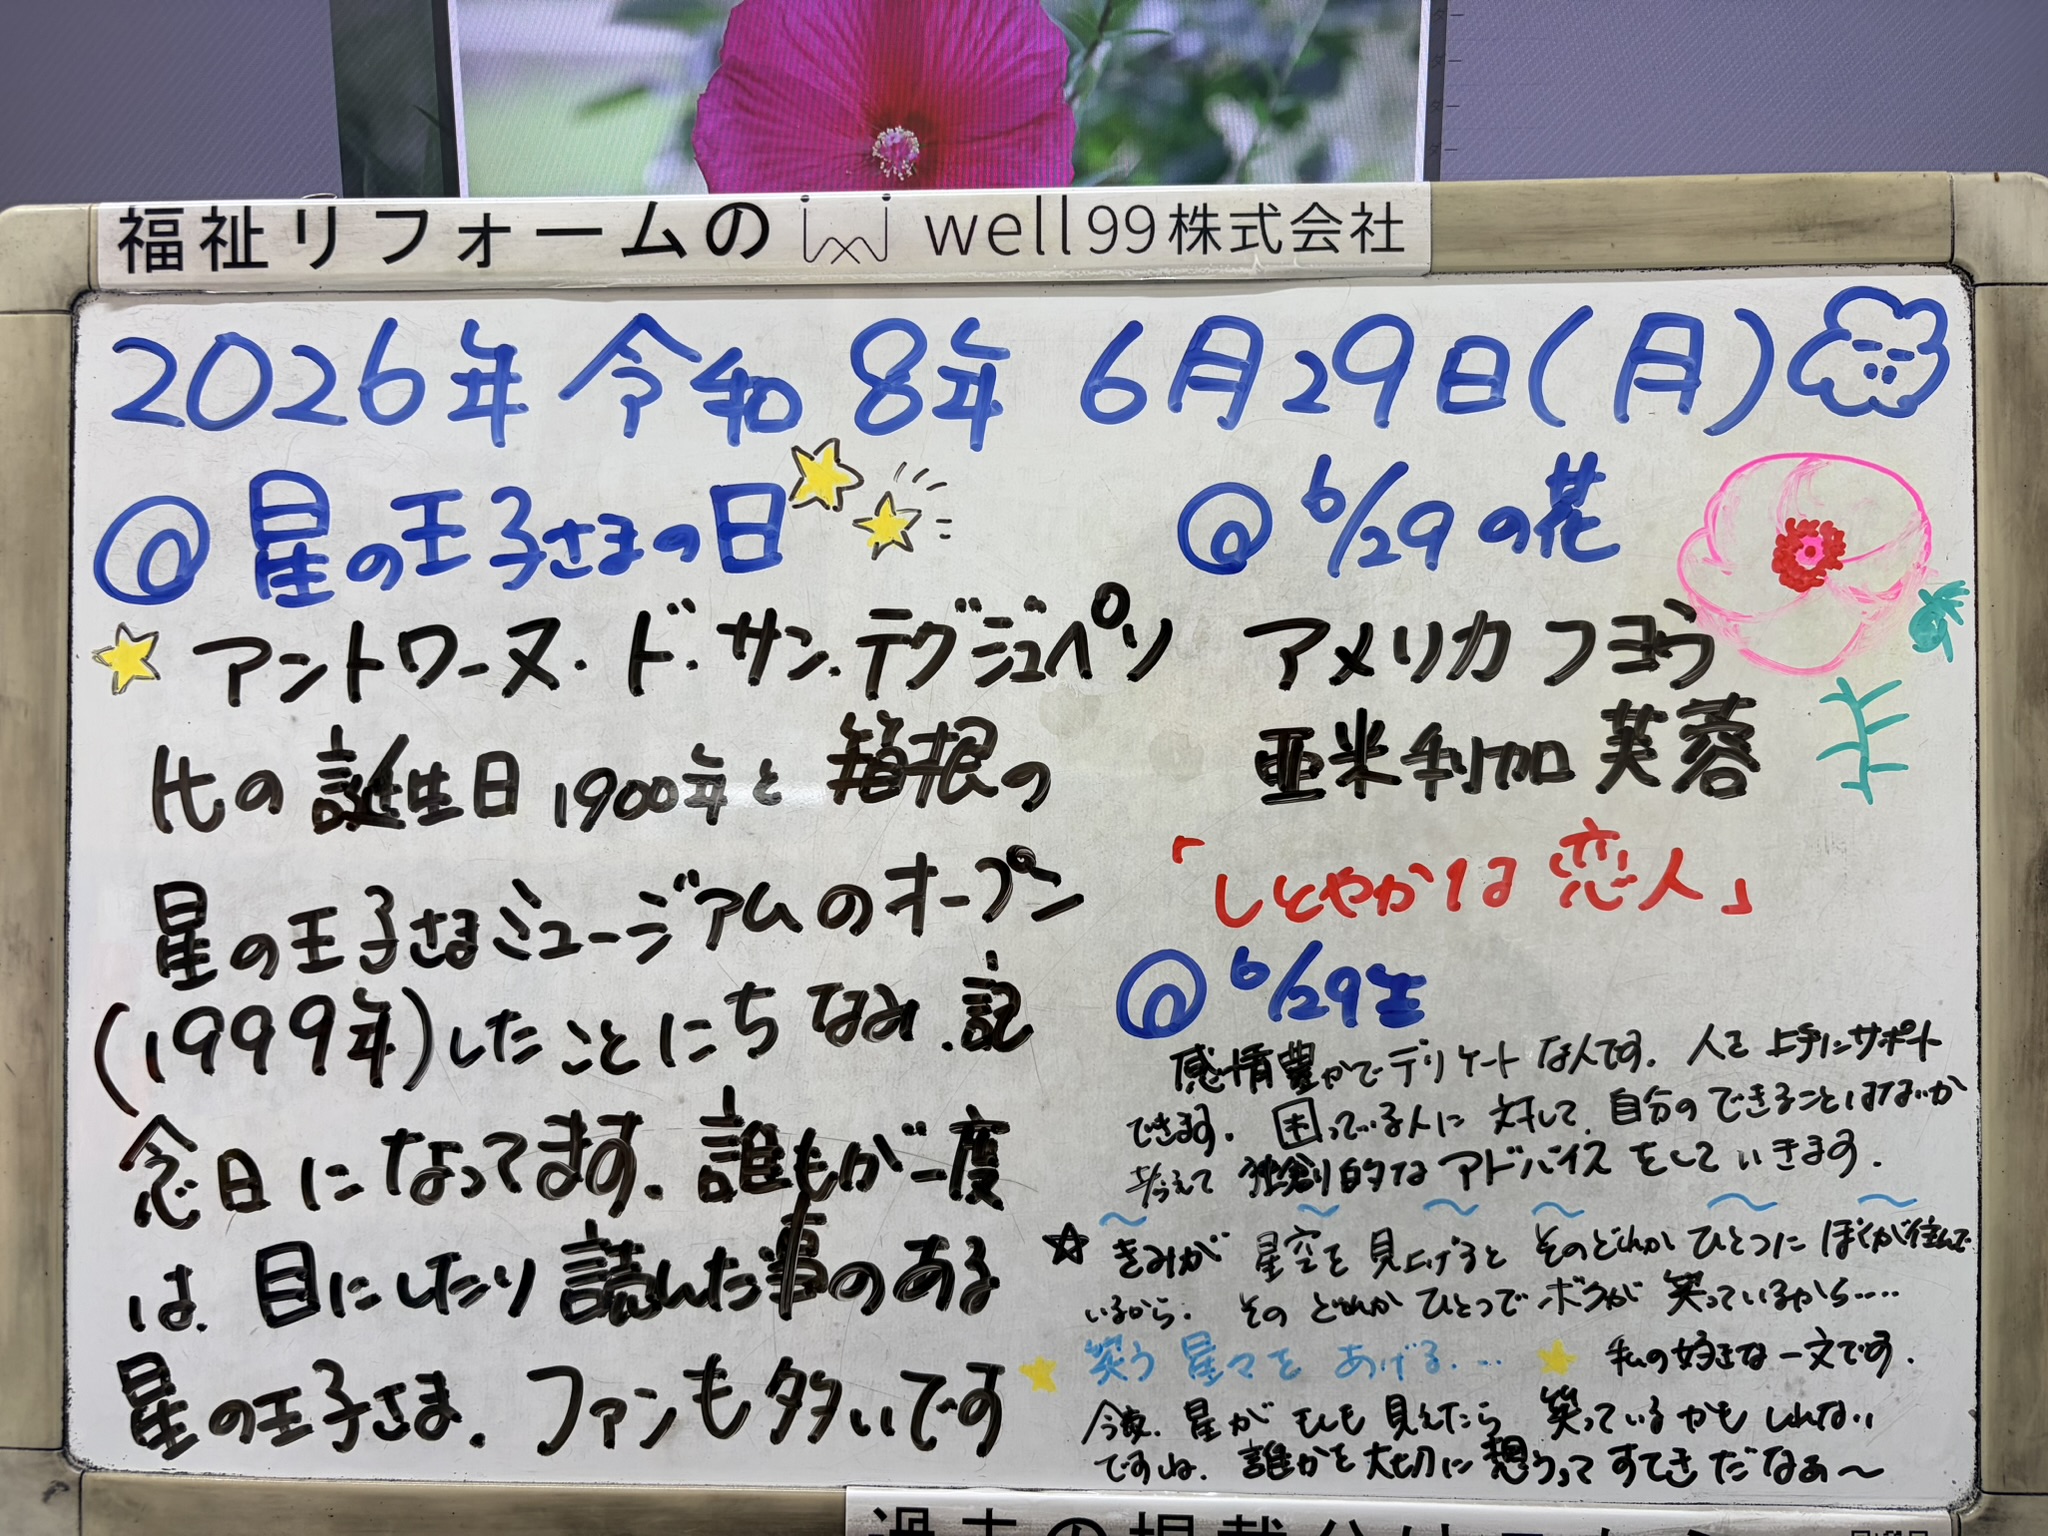 福祉リフォームの well99株式会社
2026年 令和8年 6月29日(月)
@ 星の王子さまの日
アントワーヌ・ド・サン・テグジュペリ
氏の誕生日1900年と箱根の
星の王子さまミュージアムのオープン
(1999年)したことにちなみ、記
念日になってます。誰もが一度
は、目にしたり読んだ事のある
星の王子さま。ファンも多いです
@ 6/29の花
アメリカフヨウ
亜米利加芙蓉
「しとやかな恋人」
@ 6/29生
感情豊かでデリケートな人です。人を上手にサポート
できます。困っている人に対して、自分のできることはないか
考えて独創的なアドバイスをしていきます。
☆ きみが星空を見上げるとそのどれかひとつにぼくが住んで
いるから。そのどれかひとつでボクが笑っているから‥‥
笑う星々をあげる‥‥
私の好きな一文です。
今夜、星がもしも見えたら笑っているかもしれない
ですね。誰かを大切に想うってすてきだなぁ〜